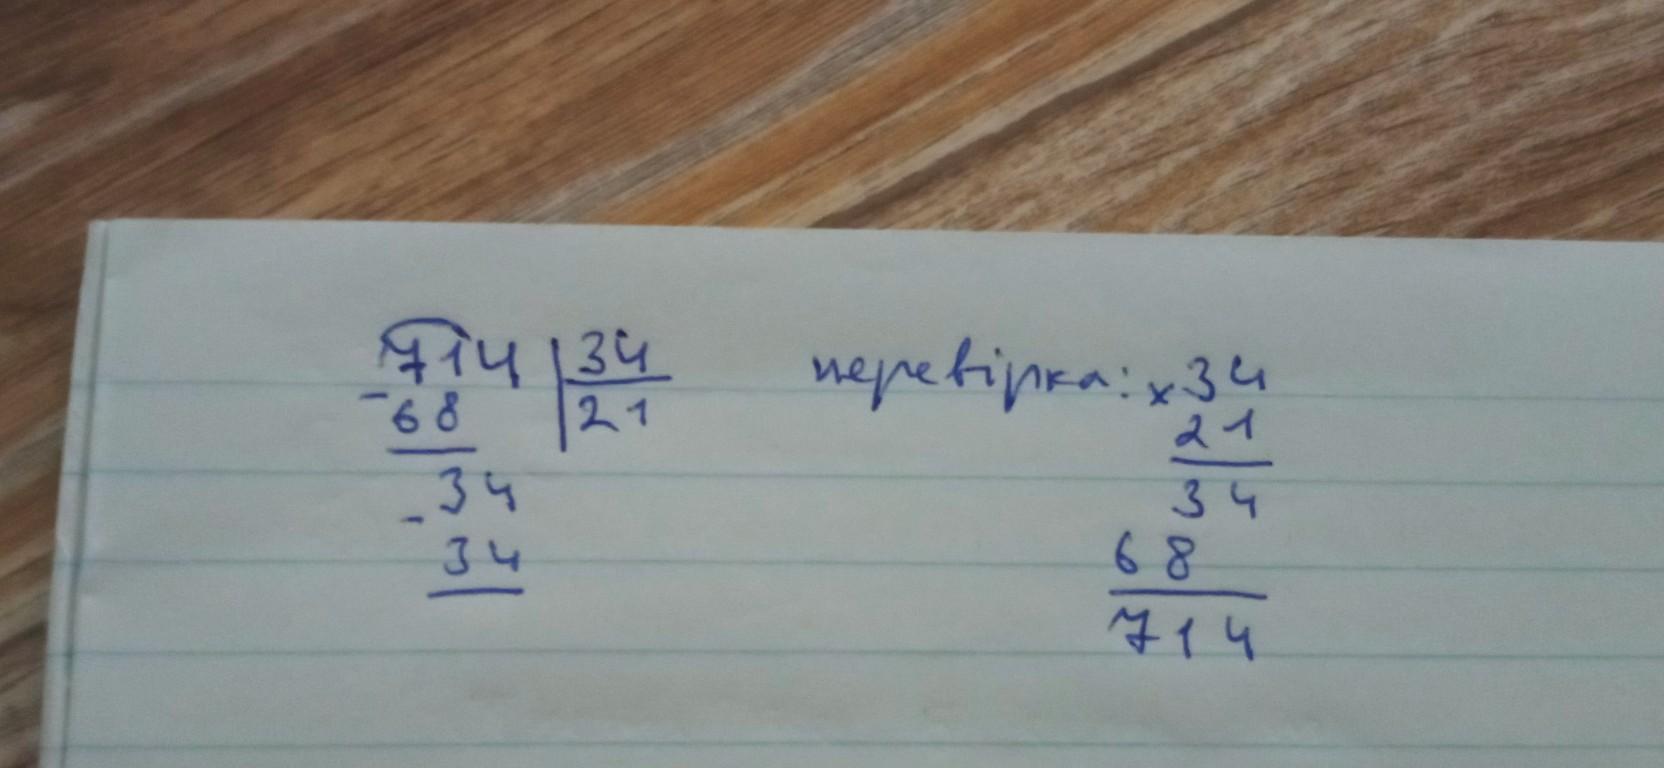 714 | 34
- 68 | 21
34
- 34
перевірка: × 34
21
34
68
714